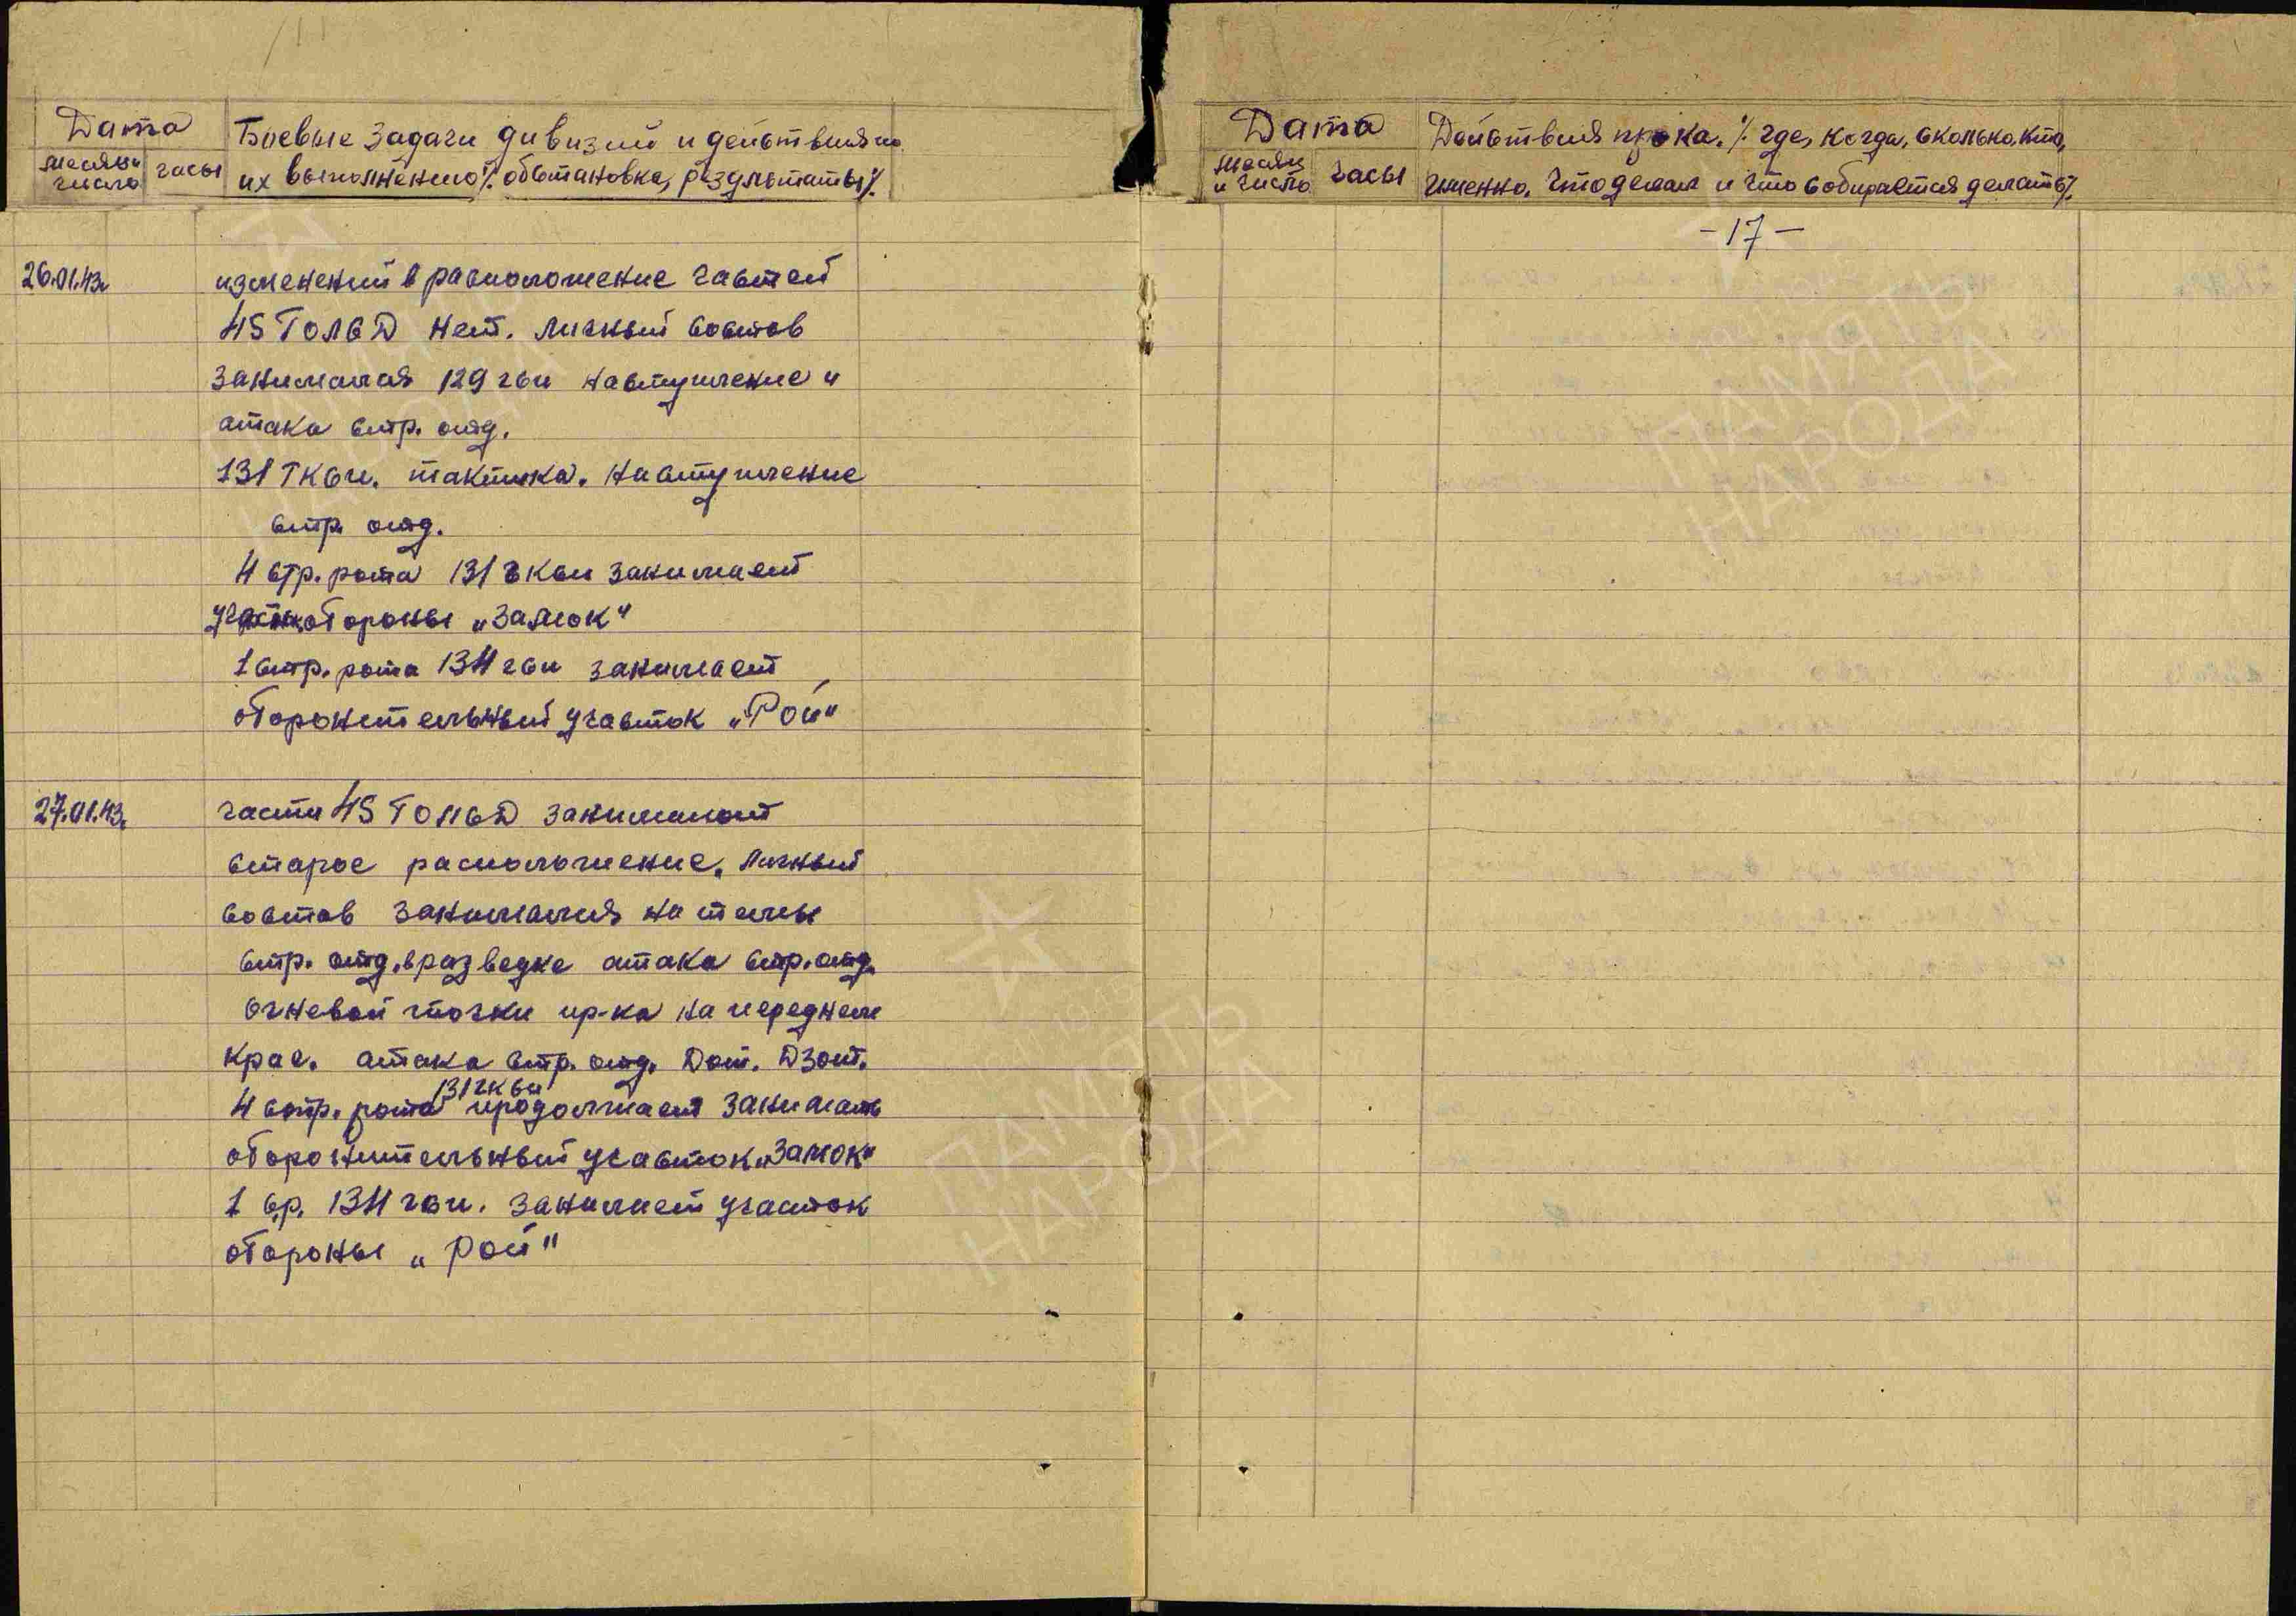 Дата
месяцы число
часы
Боевые задачи дивизий и действия по
их выполнению ٪. обстановка, результаты ٪.
26.01.43г
изменений в расположение частей
45 ГОЛСД нет. Личный состав
занимался 129 гсп наступление и
атака стр. отд.
131 ГКСп. тактика. наступление
стр. отд.
4 стр. рота 131 гксп занимает
участк обороны „Замок"
1 стр. рота 134 гсп занимает
оборонительный участок „Рой"
27.01.43г
части 45 ГОЛСД занимают
старое расположение. Личный
состав занимался на темы
стр. отд. в разведке атака стр. отд.
огневой точки пр-ка на переднем
крае. атака стр. отд. Дот. Дзот.
4 стр. рота 131 гксп продолжает занимать
оборонительный участок „Замок"
1 ср. 134 гсп. занимает участок
обороны „Рой"
Дата
месяц и число
часы
Действия пр-ка. ٪. где, когда, сколько, кто,
именно. что делал и что собирается делать ٪.
- 17 -
ПАМЯТЬ
НАРОДА
ПАМЯТЬ
НАРОДА